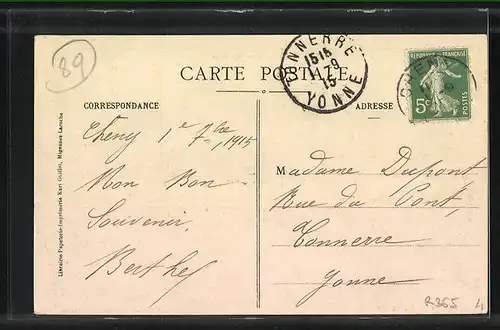 89
CARTE POSTALE
TONNERRE
15 15
1-9
15
YONNE
RÉPUBLIQUE FRANÇAISE
5c
POSTES
CHENY
CORRESPONDANCE
ADRESSE
Cheny 1er 7bre 1915
Mon Bon
Souvenir
Berthe
Madame Dupont
Rue du Pont,
Tonnerre
Yonne
Librairie-Papeterie-Imprimerie Karl Guillot, Migennes-Laroche
R365 4